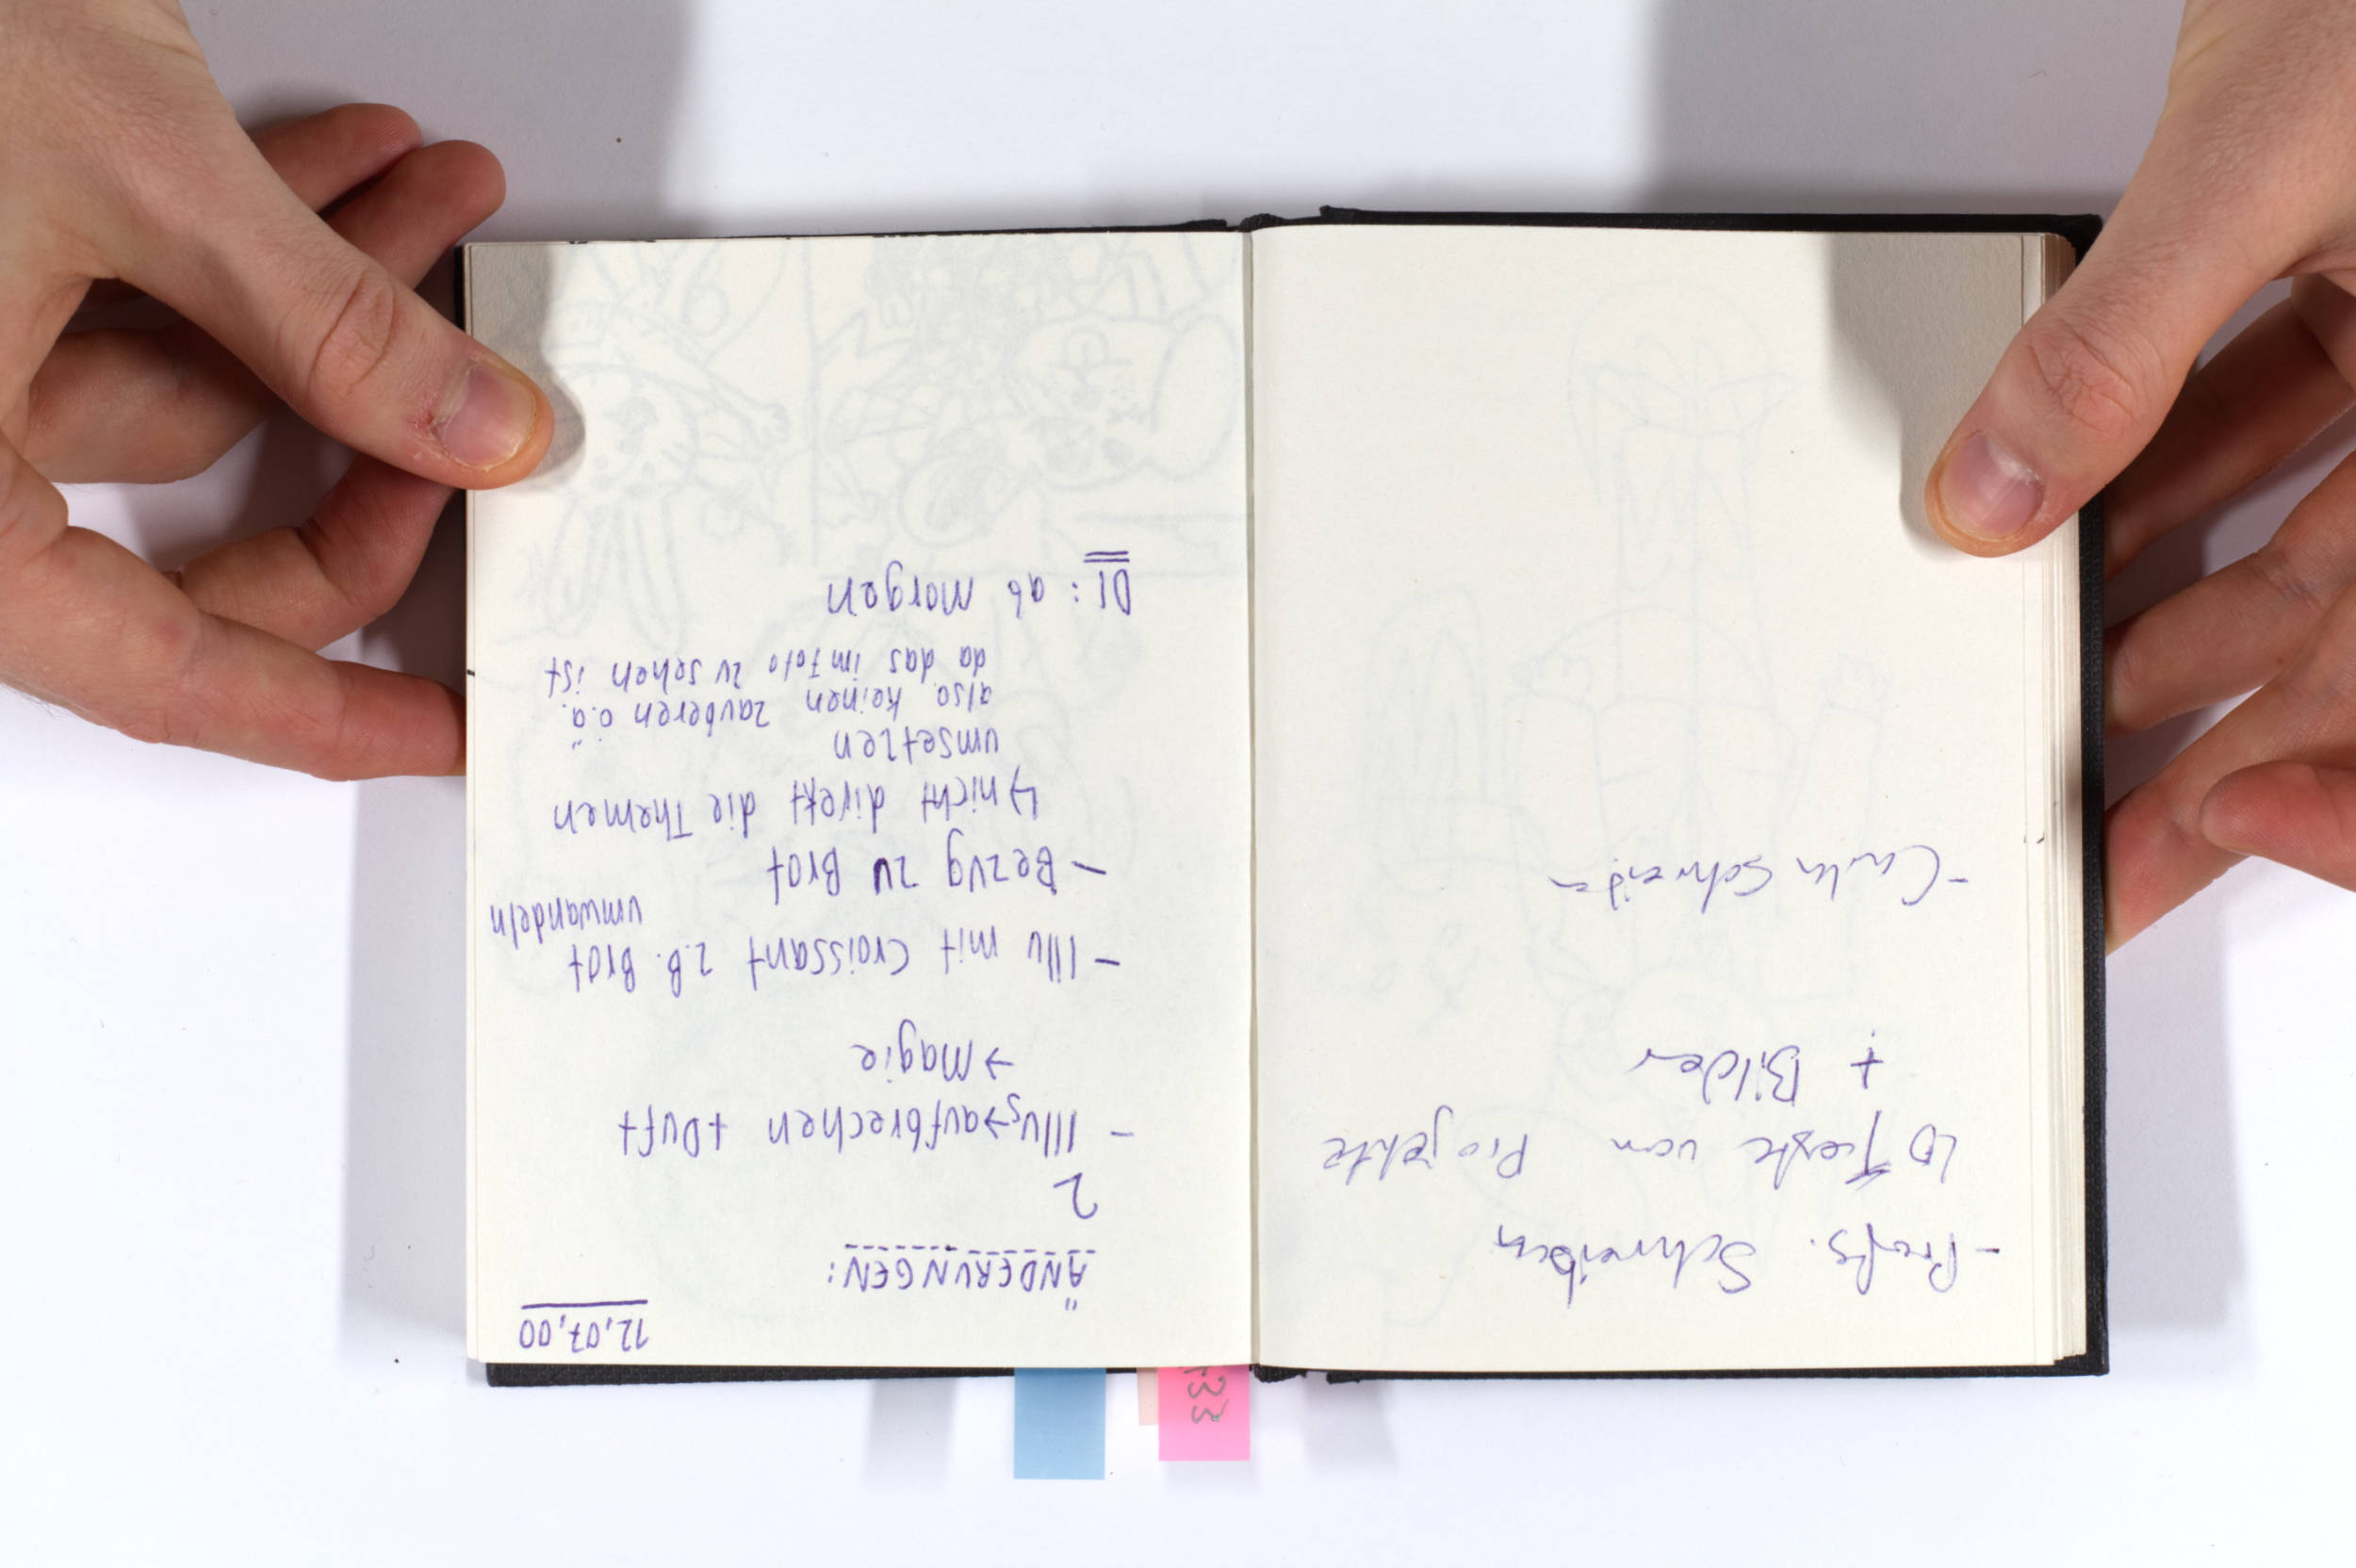 - Profs. Schreiben
↳ Texte von Projekte
+ Bilder
12,07,00
ÄNDERUNGEN:
2
- Illus→aufbrechen + Duft
→ Magie
- Illu mit Croissant z.B. Brot
umwandeln
- Bezug zu Brot
↳ nicht direkt die Themen
umsetzen
also keinen zauberen o.ä.
da das im Foto zu sehen ist
DI: ab morgen